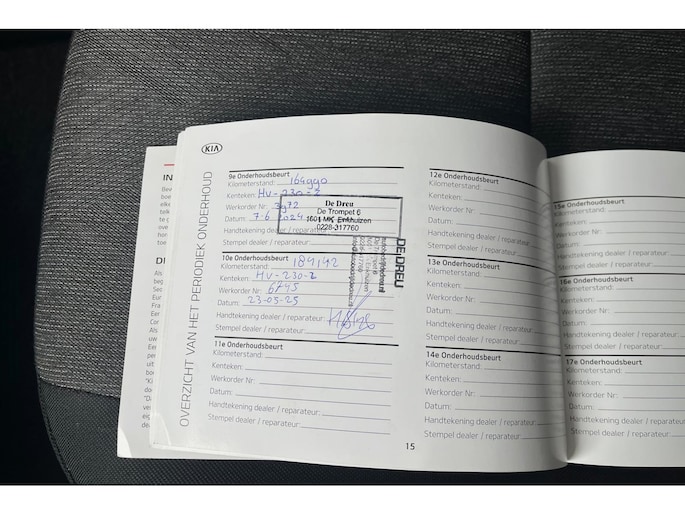 KIA
OVERZICHT VAN HET PERIODIEK ONDERHOUD
9e Onderhoudsbeurt
Kilometerstand: 164990
Kenteken: HV-230-Z
Werkorder Nr: 3972
Datum: 7-6-2024
Handtekening dealer / reparateur:
Stempel dealer / reparateur:
De Dreu
De Trompet 6
1601 MK Enkhuizen
0228-317760
10e Onderhoudsbeurt
Kilometerstand: 184142
Kenteken: HV-230-Z
Werkorder Nr: 6745
Datum: 23-05-25
Handtekening dealer / reparateur:
Stempel dealer / reparateur:
DE DREU
11e Onderhoudsbeurt
Kilometerstand:
Kenteken:
Werkorder Nr:
Datum:
Handtekening dealer / reparateur:
Stempel dealer / reparateur:
12e Onderhoudsbeurt
Kilometerstand:
Kenteken:
Werkorder Nr:
Datum:
Handtekening dealer / reparateur:
Stempel dealer / reparateur:
13e Onderhoudsbeurt
Kilometerstand:
Kenteken:
Werkorder Nr:
Datum:
Handtekening dealer / reparateur:
Stempel dealer / reparateur:
14e Onderhoudsbeurt
Kilometerstand:
Kenteken:
Werkorder Nr:
Datum:
Handtekening dealer / reparateur:
Stempel dealer / reparateur:
15
15e Onderhoudsbeurt
Kilometerstand:
Kenteken:
Werkorder Nr:
Datum:
Handtekening dealer
Stempel dealer / reparateur:
16e Onderhoudsbeurt
Kilometerstand:
Kenteken:
Werkorder Nr:
Datum:
Handtekening dealer / repara
Stempel dealer / reparateur:
17e Onderhoudsbeurt
Kilometerstand:
Kenteken:
Werkorder Nr:
Datum:
Handtekening dealer / repara
Stempel dealer / reparateur: